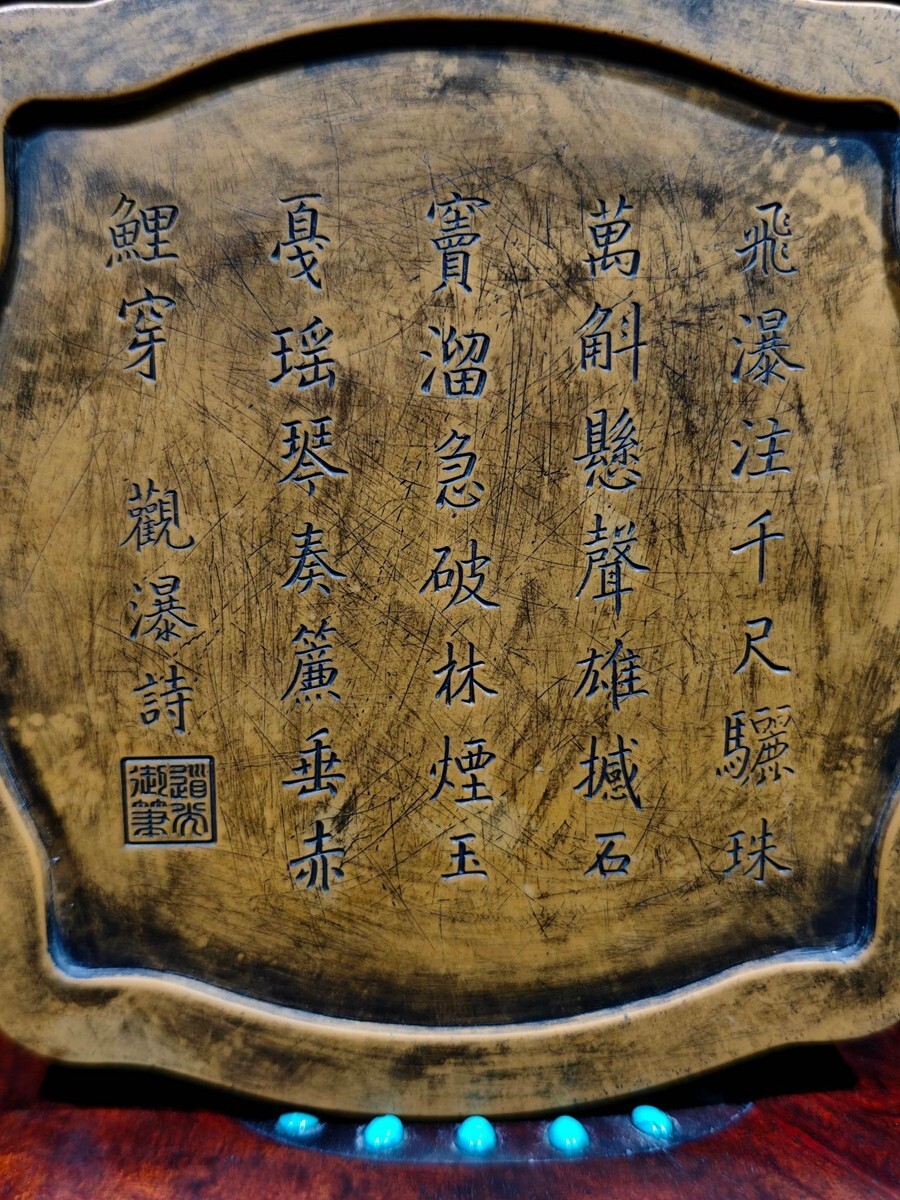 飛瀑注千尺驪珠
萬斛懸聲雄撼石
竇溜急破林煙玉
戛瑤琴奏簾垂赤
鯉穿 觀瀑詩
道光御筆